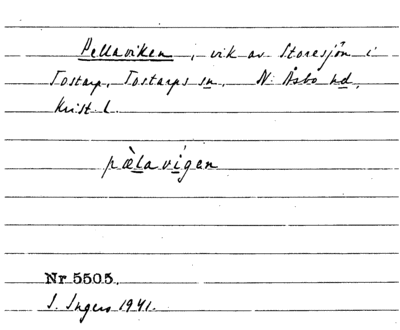 Pellaviken, vik av Storesjön i
Tostarp, Tostarps sn, N. Åsbo hd,
Krist. l.
pæ̀lavígan
Nr 5505.
I. Ingers 1941.